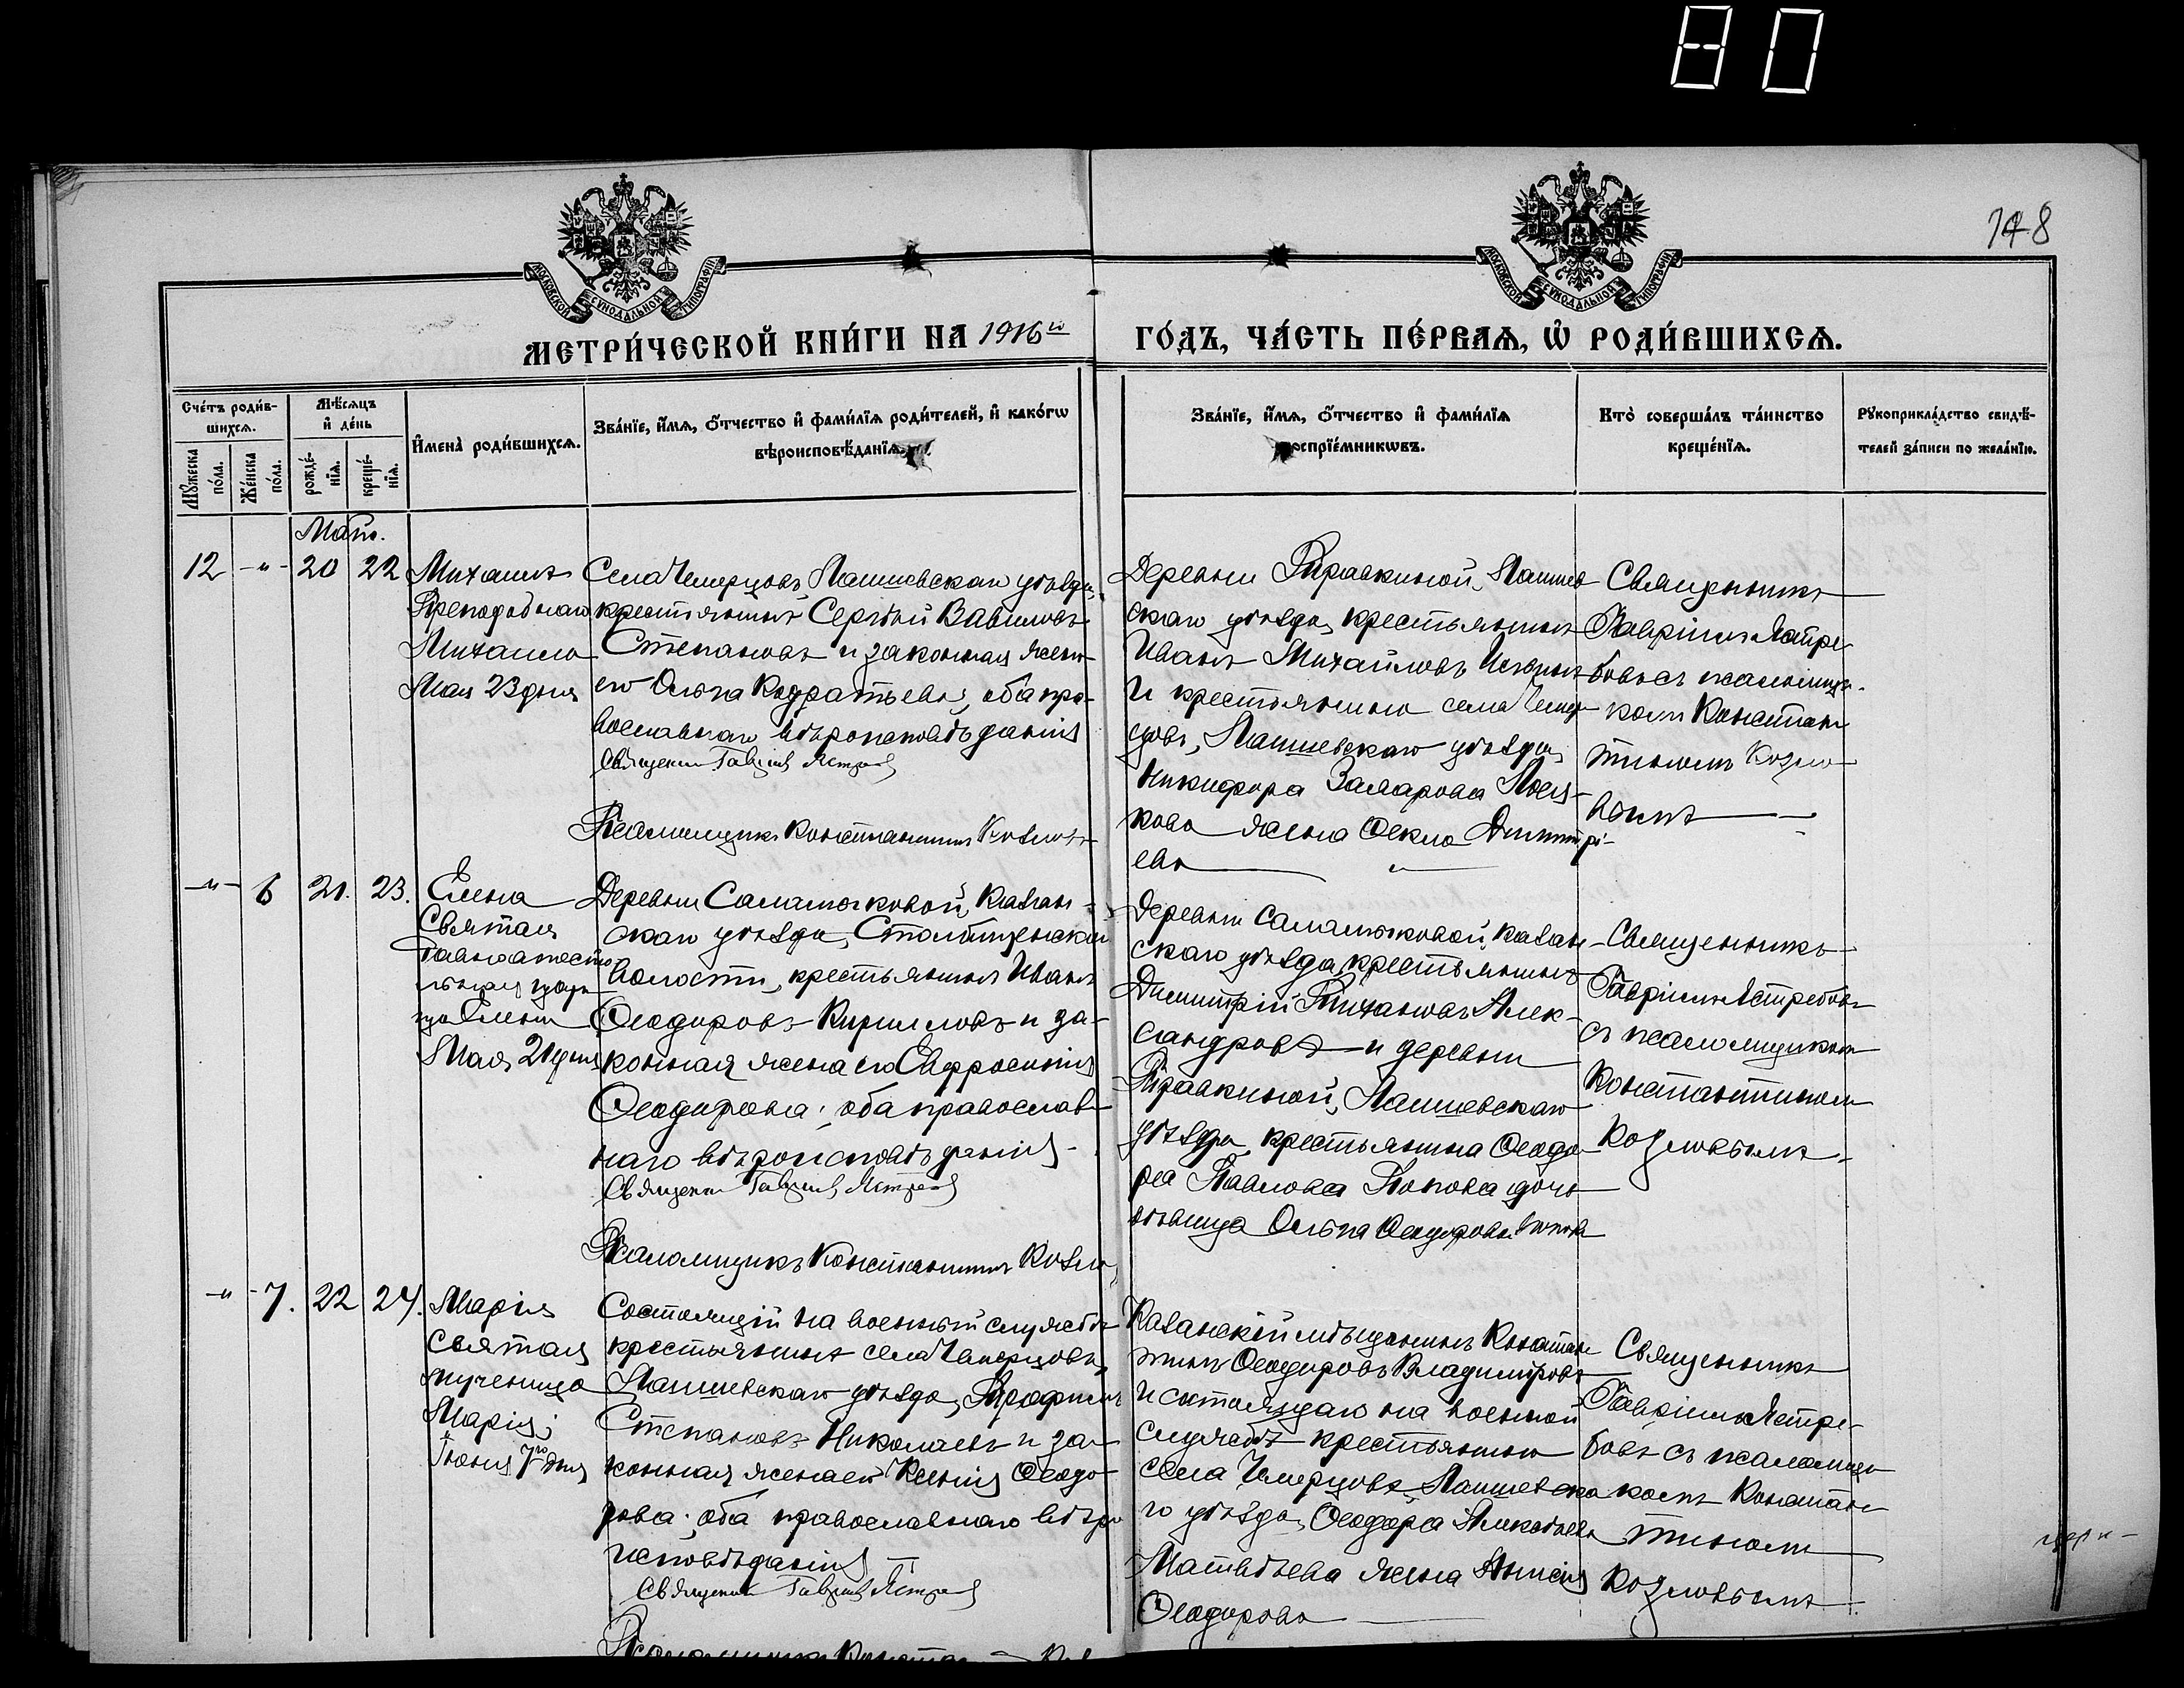 80
148
МОСКОВСКОЙ СѴНОДАЛЬНОЙ ТИПОГРАФІИ
МОСКОВСКОЙ СѴНОДАЛЬНОЙ ТИПОГРАФІИ
МЕТРИ́ЧЕСКОЙ КНИ́ГИ НА 1916й ГО́ДЪ, ЧА́СТЬ ПЕ́РВАѦ, Ѡ҆ РОДИ́ВШИХСѦ.
Сче́тъ роди́в-
шихсѧ.
Мѣ́сѧцъ
и҆ де́нь
Мꙋ́жеска по́ла.
Же́нска по́ла.
рожде́-нїѧ.
креще́-нїѧ.
И҆мена̀ роди́вшихсѧ.
Зва́нїе, и҆́мѧ, ѻ҆́тчество и҆ фами́лїѧ роди́телей, и҆ како́гѡ
вѣроисповѣ́данїѧ.
Зва́нїе, и҆́мѧ, ѻ҆́тчество и҆ фами́лїѧ
воспрїе́мникѡвъ.
Кто̀ соверша́лъ та́инство
креще́нїѧ.
Рꙋкоприкла́дство свидѣ́-
телей за́писи по жела́нїю.
Май.
12 -"- 20 22
Михаилъ
Преподобнаго
Михаила
Мая 23 дня
Села Чемерцовъ, Лаишевскаго уѣзда,
крестьянинъ Сергѣй Вавиловъ
Степановъ и законная жена
его Ольга Кодратьева, оба пра-
вославнаго вѣроисповѣданія
Священникъ Гавріилъ Ястребовъ
Псаломщикъ Константинъ Козловъ
Деревни Травкиной, Лаишев
скаго уѣзда, крестьянинъ
Иванъ Михайловъ
и крестьянина села Чемер
цовъ, Лаишевскаго уѣзда,
Никифора Захарова
кова жена Ѳекла Димитрі-
ева
Священникъ
Гавріилъ Ястре
бовъ съ псаломщи-
комъ Констан
тиномъ Козло
вымъ
-"- 6 21. 23.
Елена
Святая
равноапосто
льная цари
ца Елена
Мая 21 дня
Деревни Саламыковой, Казан-
скаго уѣзда, Столбищенской
волости, крестьянинъ Иванъ
Ѳеодоровъ Кирилловъ и за-
конная жена его Евфросинія
Ѳеодорова; оба православ
наго вѣроисповѣданія
Священникъ Гавріилъ Ястребовъ
Псаломщикъ Константинъ Козло
Деревни Саламыковой, Казан
скаго уѣзда, крестьянинъ
Димитрій Тихановъ Алек-
сандровъ и деревни
Травкиной, Лаишевскаго
уѣзда, крестьянина Ѳеодо
ра Павлова Попова дочь
дѣвица Ольга Ѳеодорова Попова
Священникъ
Гавріилъ Ястребовъ
съ псаломщикомъ
Константиномъ
Козловымъ
-"- 7. 22 24.
Марія
Святая
мученица
Марія;
Іюня 7го дня
Состоящій на военной службѣ
крестьянинъ села Чемерцовъ,
Лаишевскаго уѣзда, Трофимъ
Степановъ Николаевъ и за
конная жена его Ксенія Ѳеодо
рова; оба православнаго вѣро
исповѣданія
Священникъ Гавріилъ Ястребовъ
Псаломщикъ
Казанскій мѣщанинъ Констан
тинъ Ѳеодоровъ Владиміровъ
и состоящаго на военной
службѣ крестьянина
села Чемерцовъ, Лаишевска
го уѣзда, Ѳеодора Алексѣева
Матвѣева жена Анисія
Ѳеодорова
Священникъ
Гавріилъ Ястре-
бовъ съ псаломщи
комъ Констан
тиномъ
Козловымъ